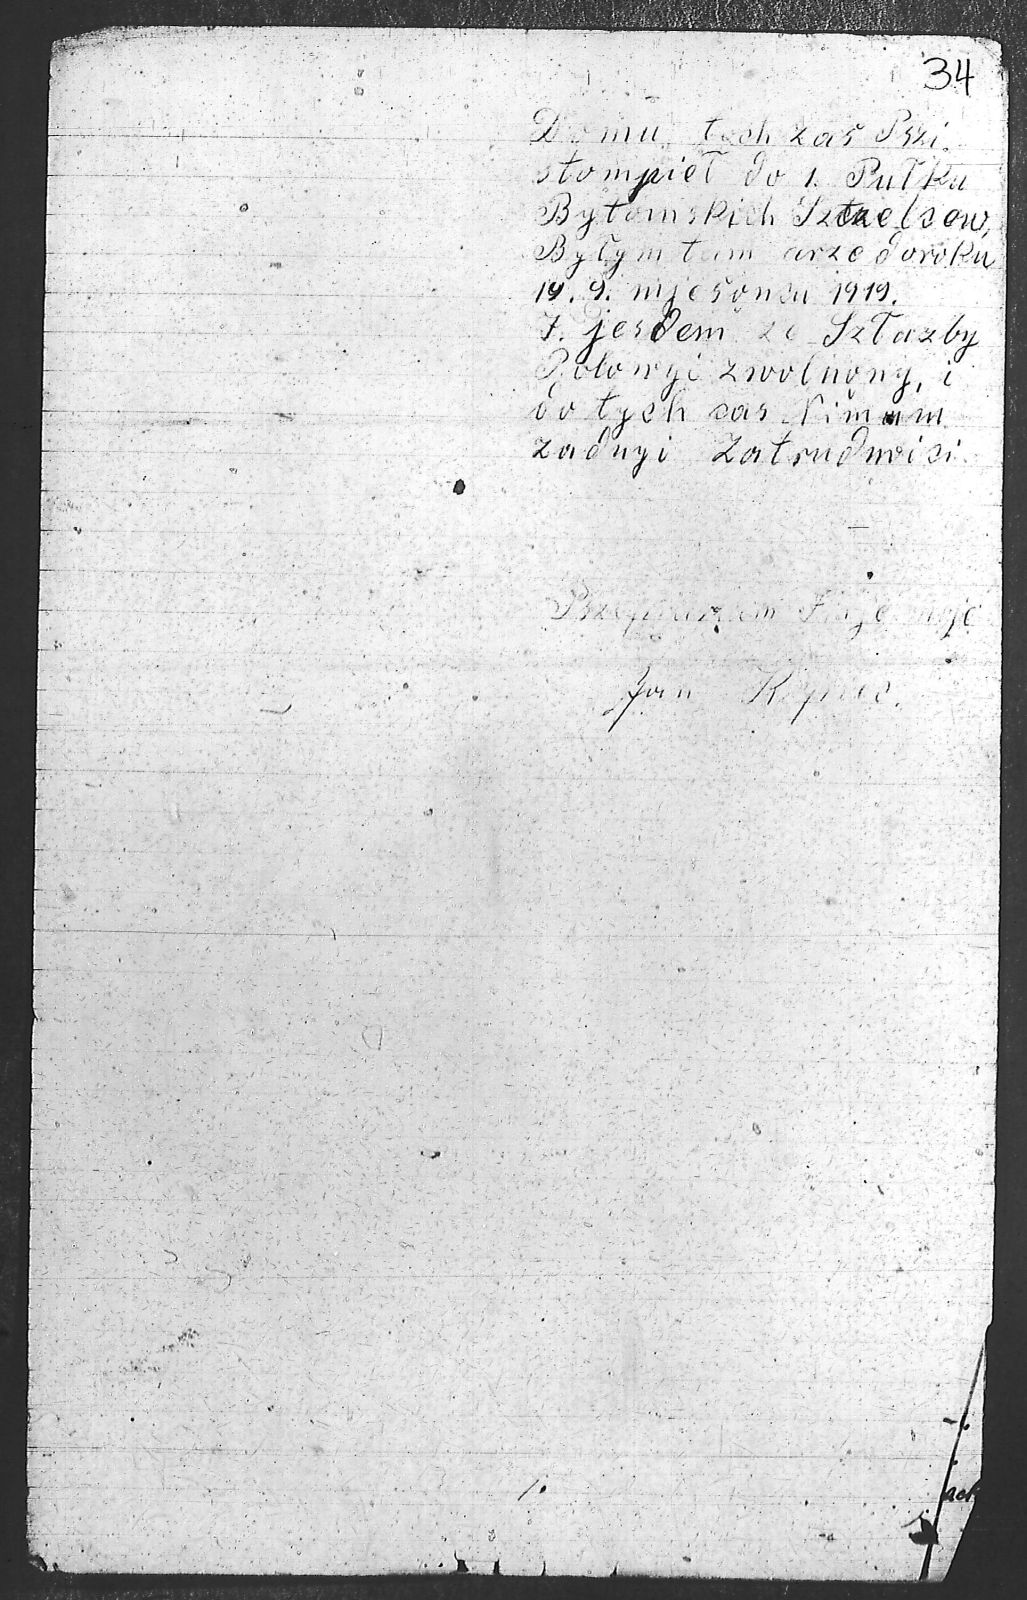 34
Domu, tych zas Pszi.
stompieł do 1. Pułku
Bytomskich Sztzelcow,
Byłym tam arze doroku
14. 9. mjesoncu 1919.
7. jesdem ze Szłuzby
Polowyi zwolnony, i
do tych cas Nimam
zadnyi Zatrudnici.
Jan